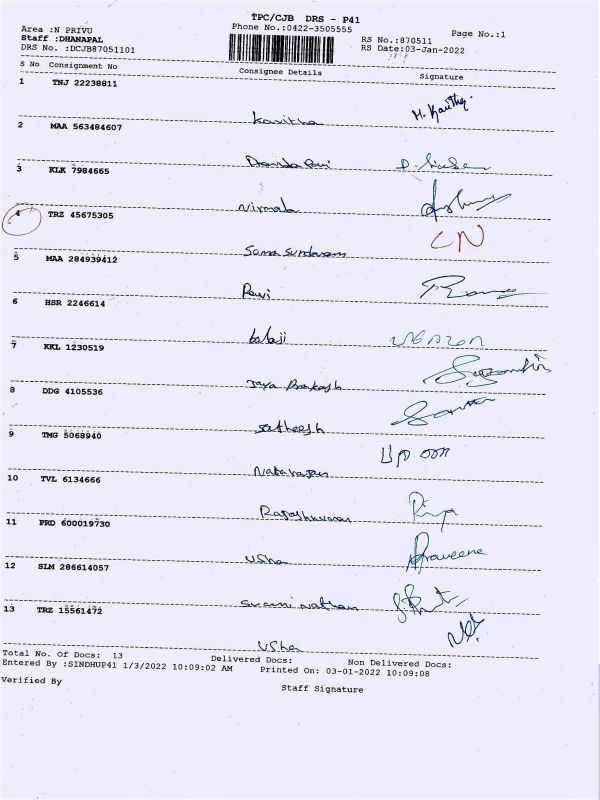 TPC/CJB DRS - P41
Area :N PRIVU Phone No.:0422-3505555 Page No.:1
Staff :DHANAPAL RS No.:870511
DRS No. :DCJB87051101 RS Date:03-Jan-2022
S No Consignment No Consignee Details Signature
1 TNJ 22238811
Kavitha M. Kavitha
2 MAA 563484607
3 KLK 7984665
Nirmala
4 TRZ 45675305 CN
Soma Sundaram
5 MAA 284939412
Ravi
6 HSR 2246614
balaji
7 KKL 1230519
Jaya Prakash
8 DDG 4105536
Satheesh
9 TMG 5068940
Natarajan
10 TVL 6134666
Priya
11 PRD 600019730
Usha Praveena
12 SLM 286614057
Swaminathan
13 TRZ 15561472
Usha
Total No. Of Docs: 13 Delivered Docs: Non Delivered Docs:
Entered By :SINDHUP41 1/3/2022 10:09:02 AM Printed On: 03-01-2022 10:09:08
Verified By Staff Signature